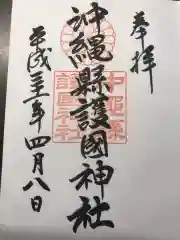 奉拝
沖縄縣護國神社
平成三十一年四月八日
沖縄県
護国神社